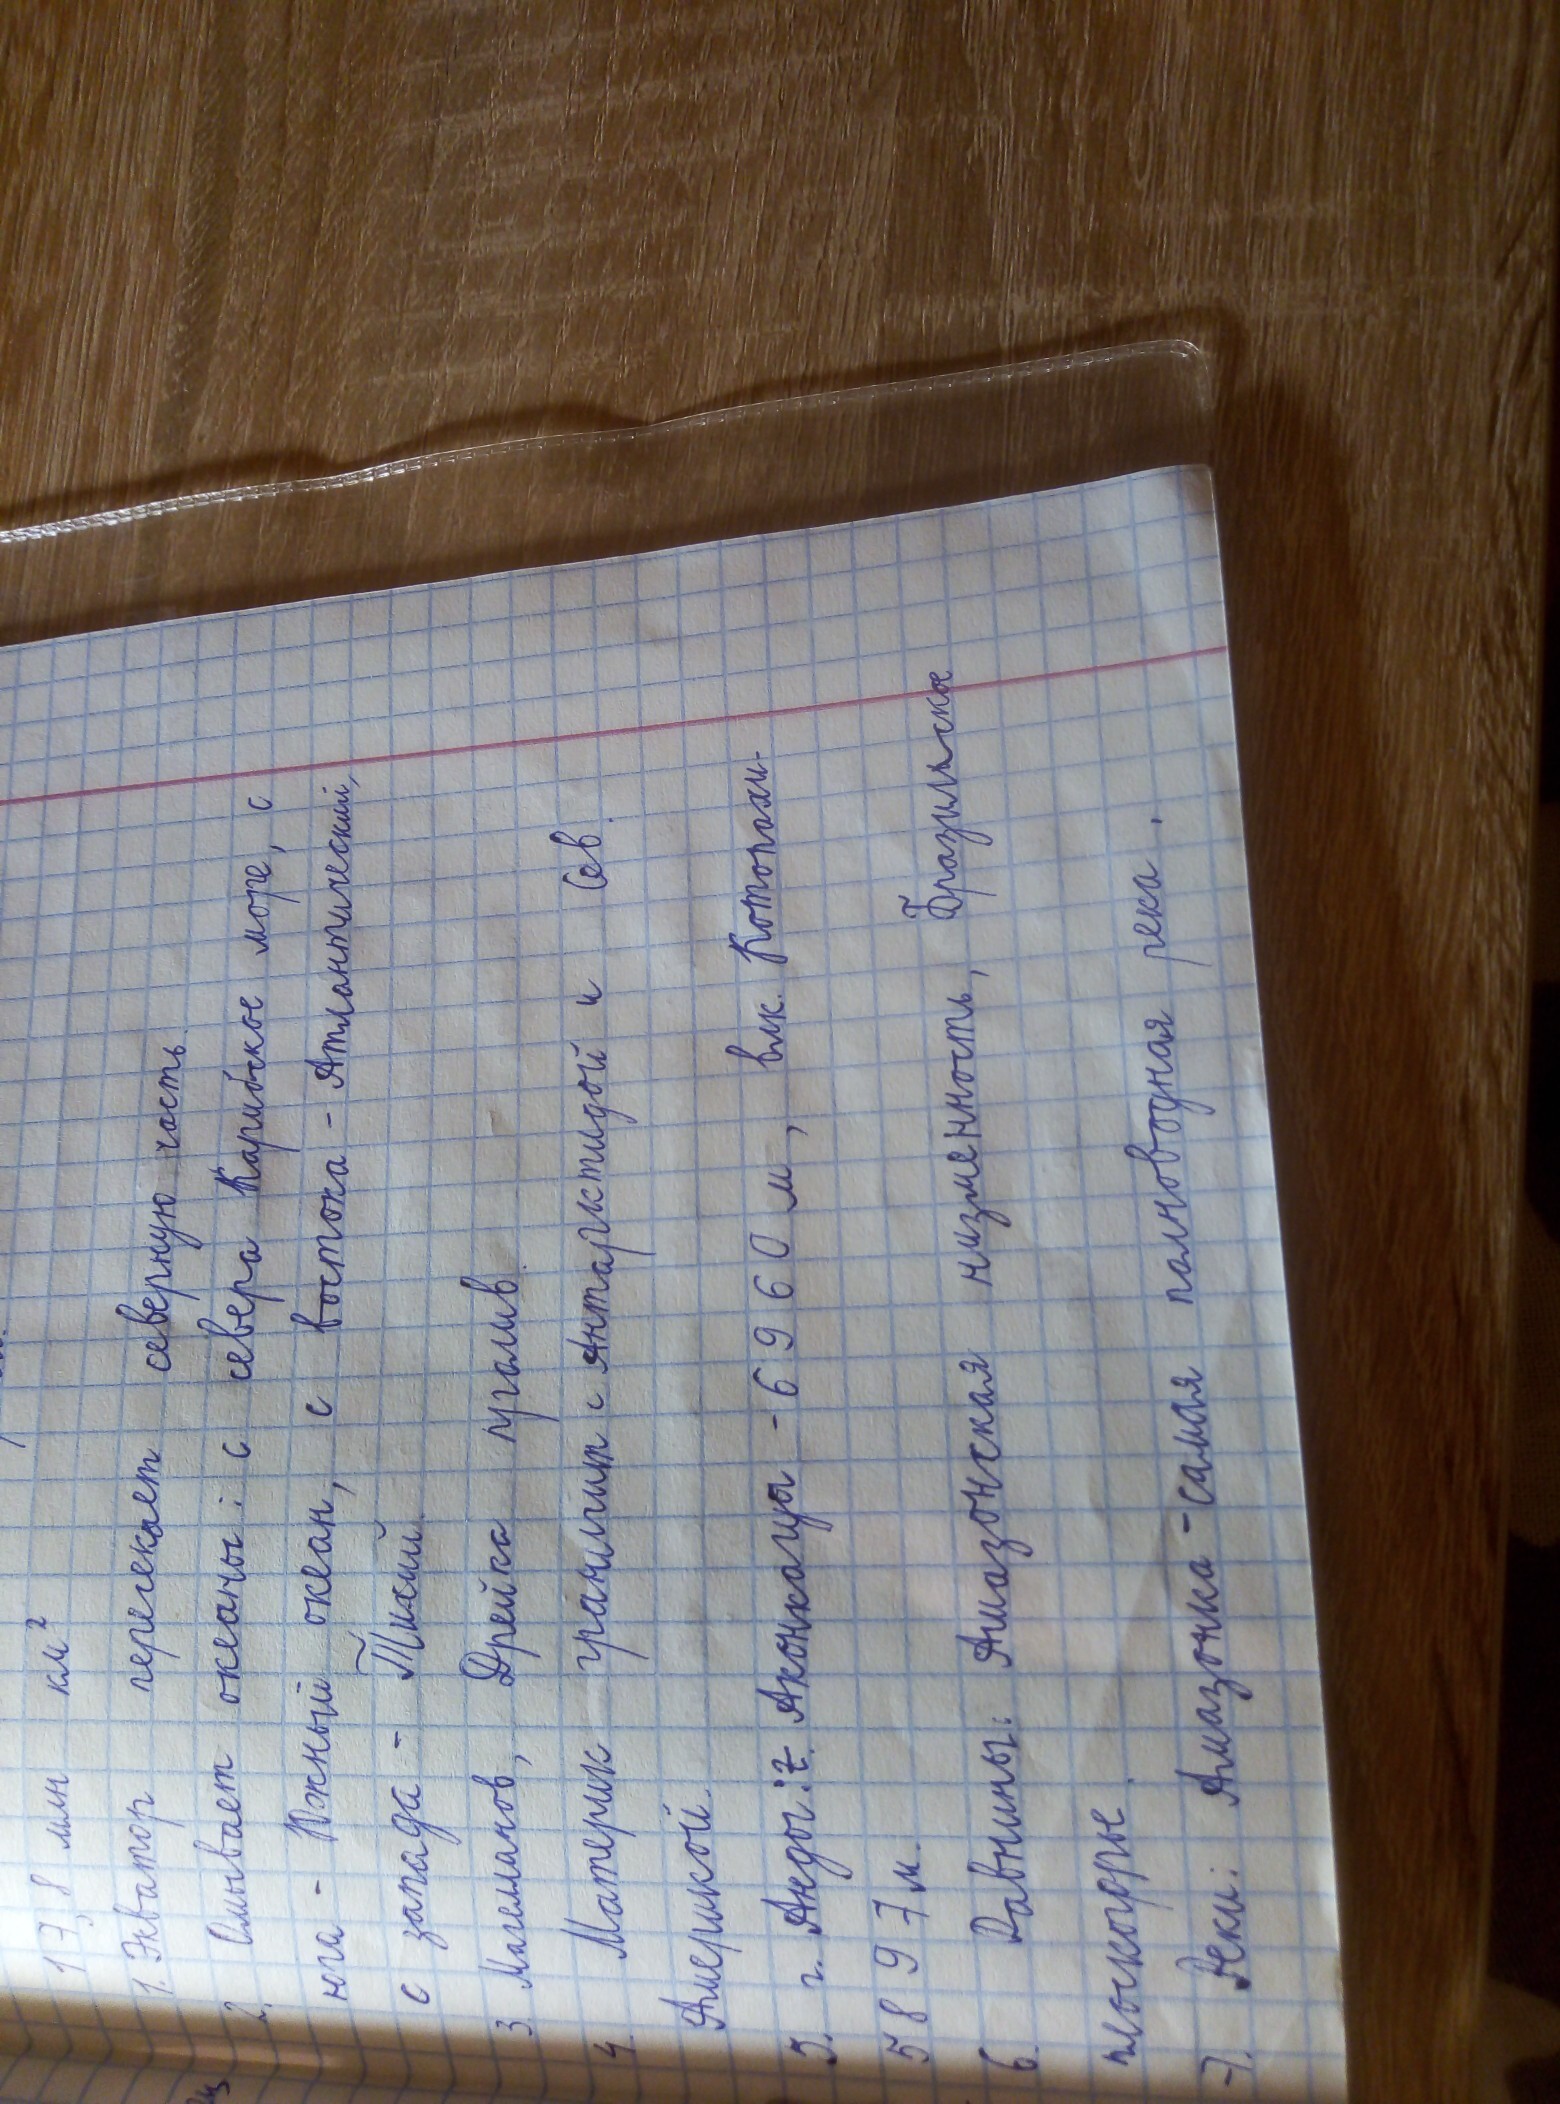 17,8 млн км²
1. Экватор перегекает северную часть
2. Омывает океаны: с севера Карибское море, с
юга - Южный океан, с востока - Атлантический,
с запада - Тихий.
3. Магелланов, Дрейка пролив.
4. Материк граничит с Антарктидой и Сев.
Америкой.
5. г. Анды: г. Аконкагуа - 6960 м, влк. Котопахи-
5897 м.
6. Равнины: Амазонская низменность, Бразильское
плоскогорье.
7. Реки: Амазонка - самая полноводная река.